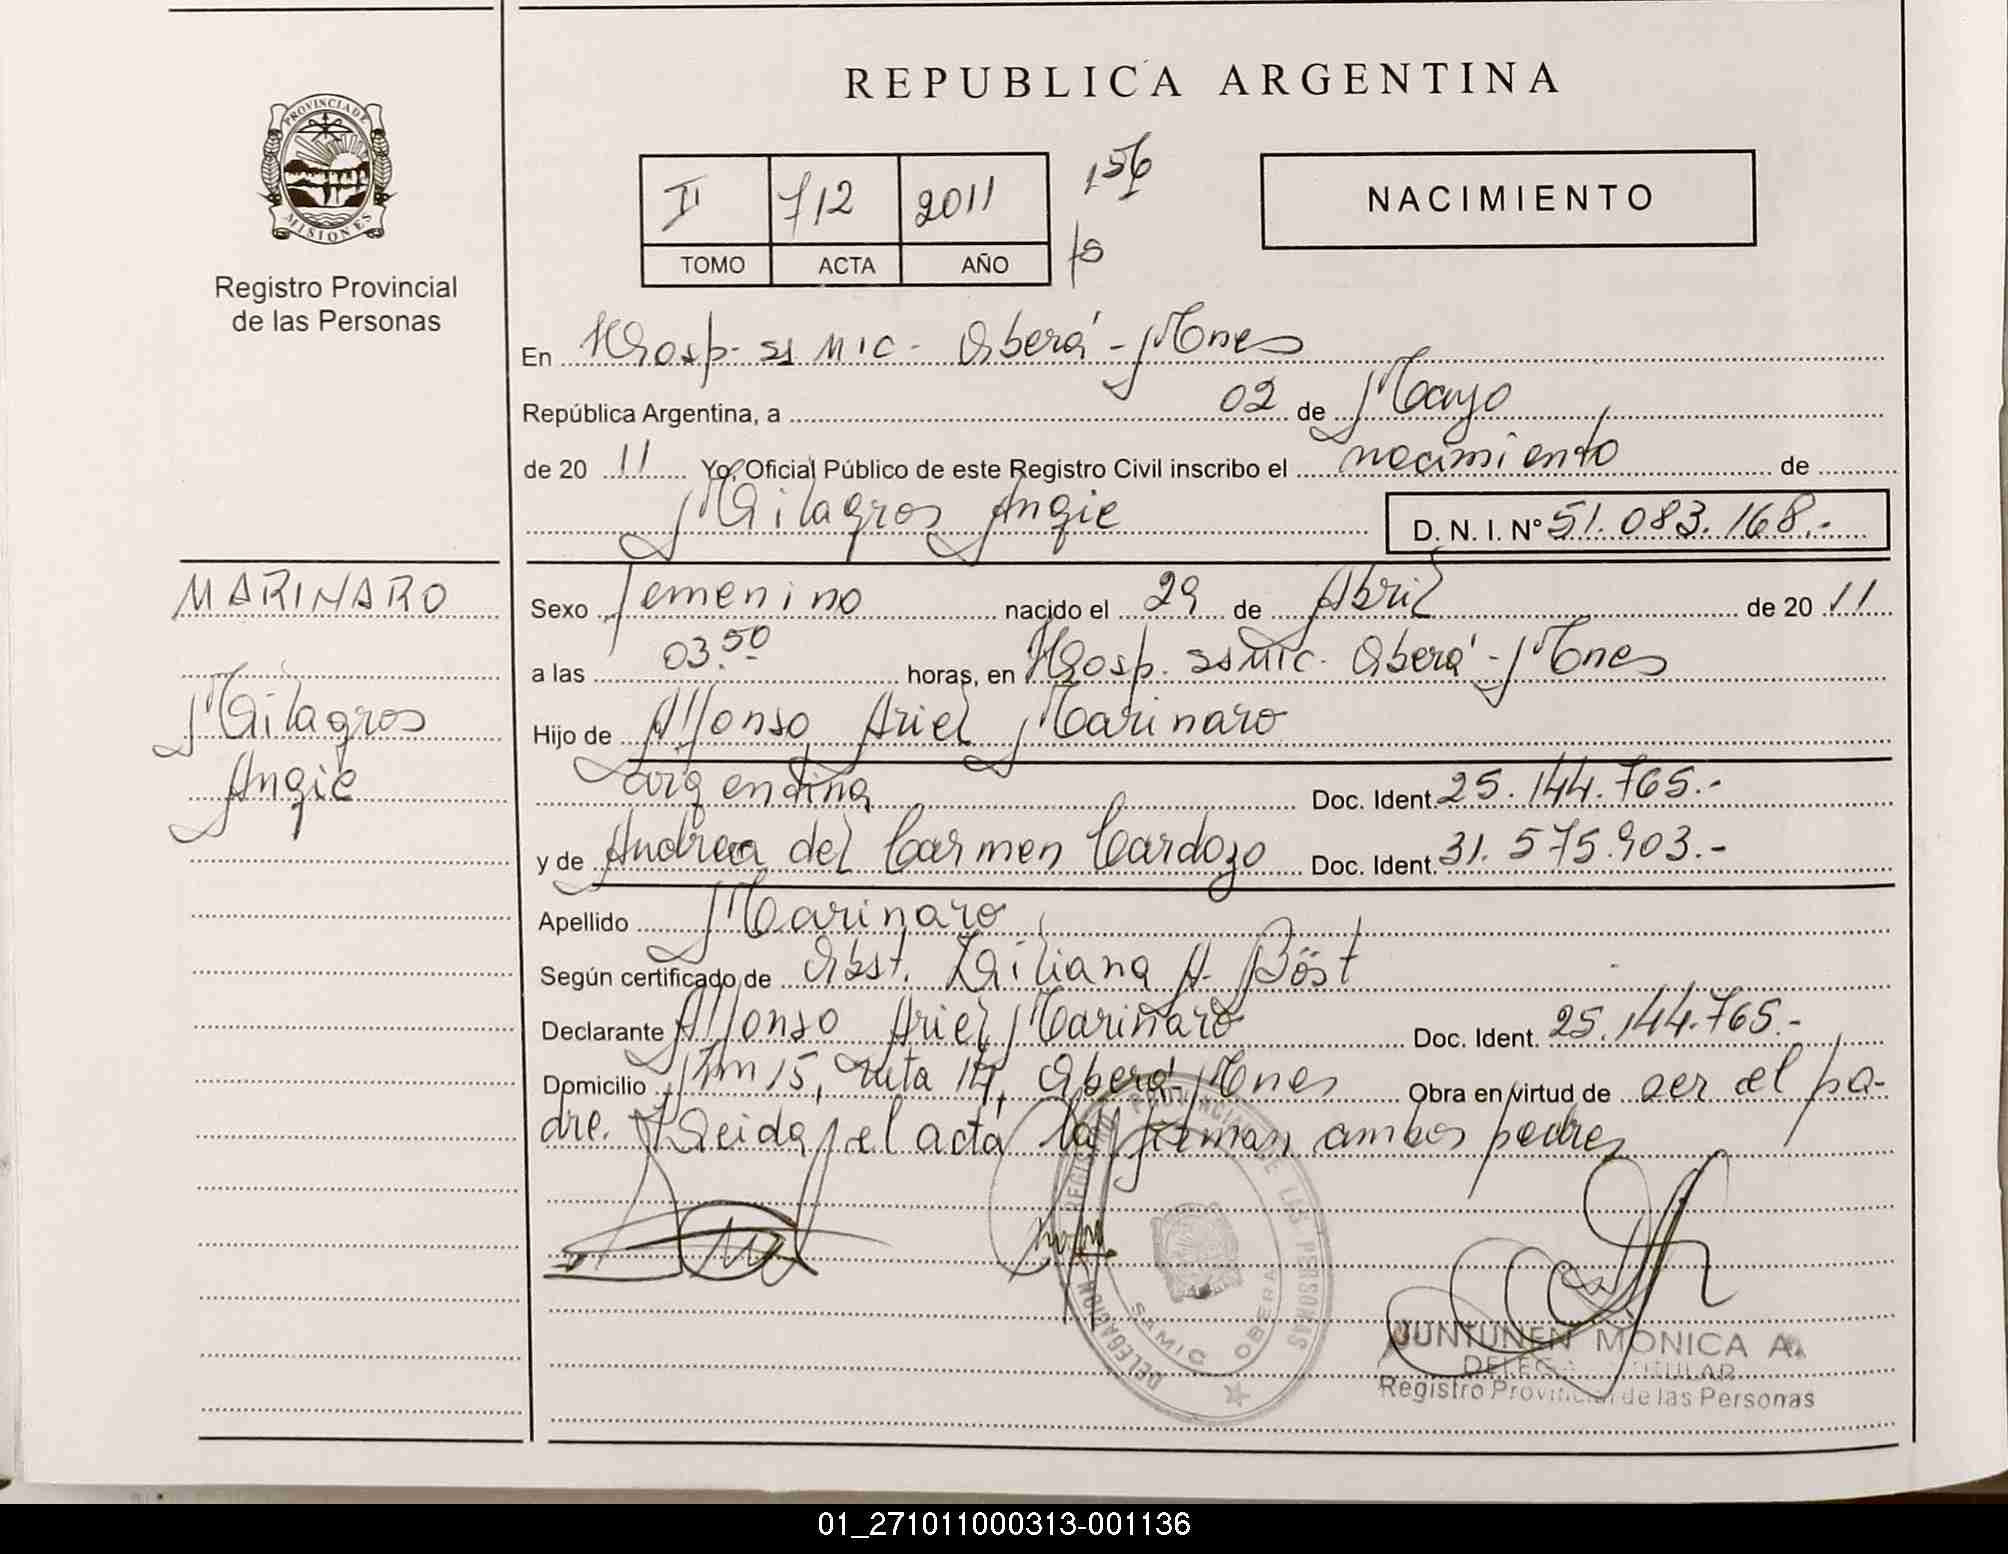 REPUBLICA ARGENTINA
PROVINCIA DE
MISIONES
Registro Provincial
de las Personas
II 712 2011 156
TOMO ACTA AÑO fs
NACIMIENTO
En Hosp. SSMIC - Oberá - Mnes
República Argentina, a 02 de Mayo
de 20 11 Yo, Oficial Público de este Registro Civil inscribo el nacimiento de
Milagros Angie D. N. I. Nº 51.083.168.-
MARINARO
Milagros
Angie
Sexo Femenino nacido el 29 de Abril de 20 11
a las 03.50 horas, en Hosp. SSMIC. Oberá - Mnes
Hijo de Alfonso Ariel Marinaro
argentina Doc. Ident. 25.144.765.-
y de Andrea del Carmen Cardozo Doc. Ident. 31.575.903.-
Apellido Marinaro
Según certificado de Obst. Liliana A. Böst
Declarante Alfonso Ariel Marinaro Doc. Ident. 25.144.765.-
Domicilio Km 15, ruta 14, Oberá - Mnes Obra en virtud de ser el pa-
dre. Leida el acta la firman ambos padres
DELEGACION REGISTRO PROVINCIAL DE LAS PERSONAS
SAMIC OBERA
JUNTUNEN MONICA A.
DELEGADA TITULAR
Registro Provincial de las Personas
01_271011000313-001136